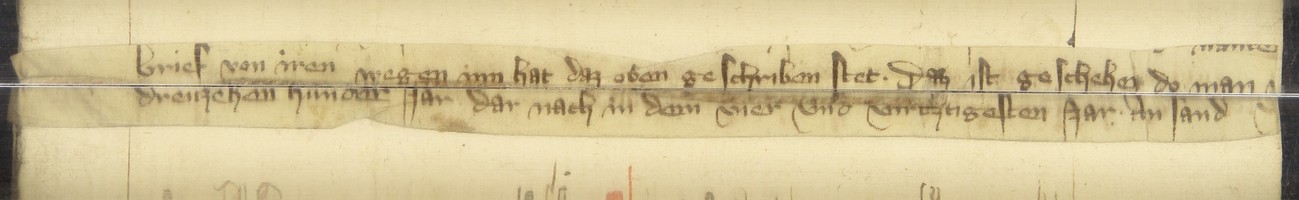 brief von iren wegen inn hat daz oben geschriben stet. Daz ist geschehen do man
dreuzehen hundert Jar dar nach in dem vier und virtzigesten Jar. An sand